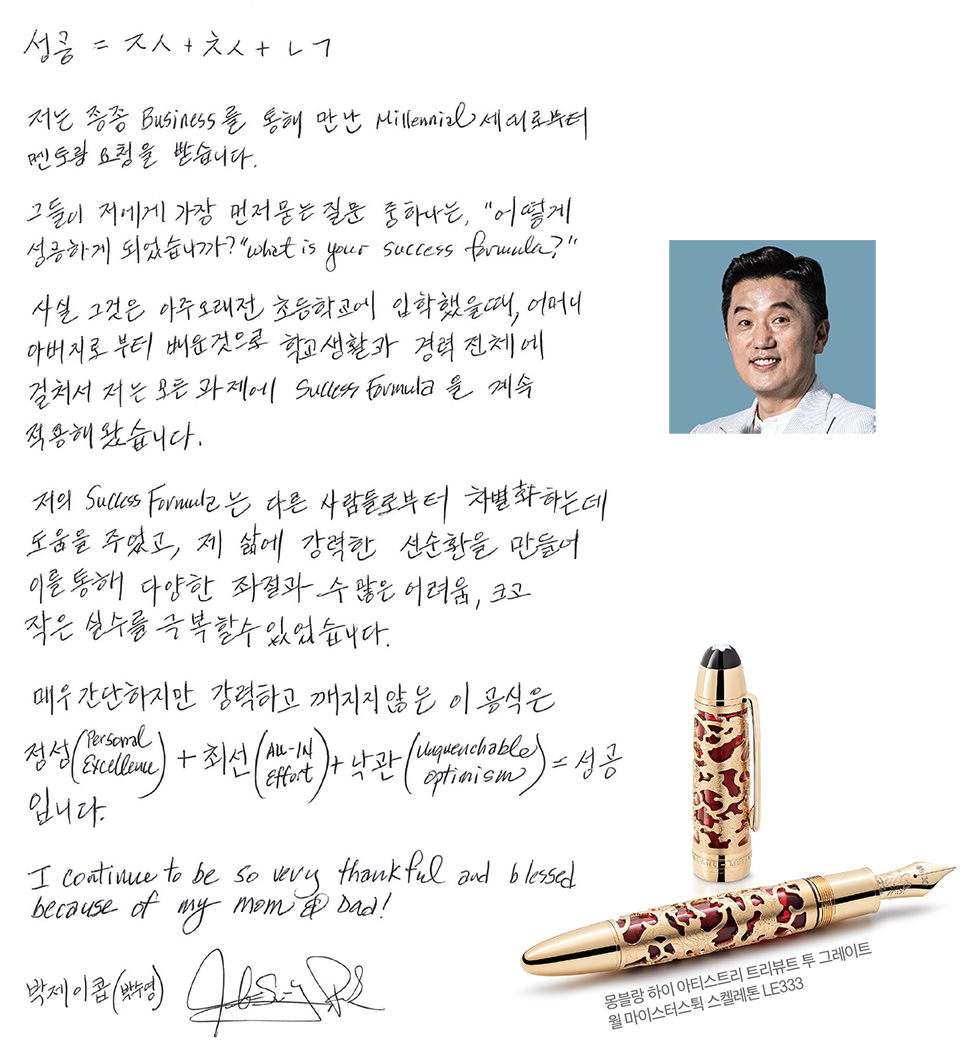 성공 = ㅈㅅ + ㅊㅅ + ㄴㄱ
저는 종종 Business를 통해 만난 Millennial 세대로부터
멘토링 요청을 받습니다.
그들이 저에게 가장 먼저 묻는 질문 중 하나는, "어떻게
성공하게 되었습니까?" "what is your success formula?"
사실 그것은 아주 오래전 초등학교에 입학했을때, 어머니
아버지로 부터 배운것으로 학교생활과 경력 전체에
걸쳐서 저는 모든 과제에 Success Formula 을 계속
적용해 왔습니다.
저의 Success Formula는 다른 사람들로부터 차별화하는데
도움을 주었고, 제 삶에 강력한 선순환을 만들어
이를 통해 다양한 좌절과 수 많은 어려움, 크고
작은 실수를 극복할수 있었습니다.
매우 간단하지만 강력하고 깨지지 않는 이 공식은
정성(Personal Excellence) + 최선(All-IN Effort) + 낙관(Unquenchable optimism) = 성공
입니다.
I continue to be so very thankful and blessed
because of my mom & Dad!
박제이콥(박수영)
몽블랑 하이 아티스트리 트리뷰트 투 그레이트
월 마이스터스튁 스켈레톤 LE333